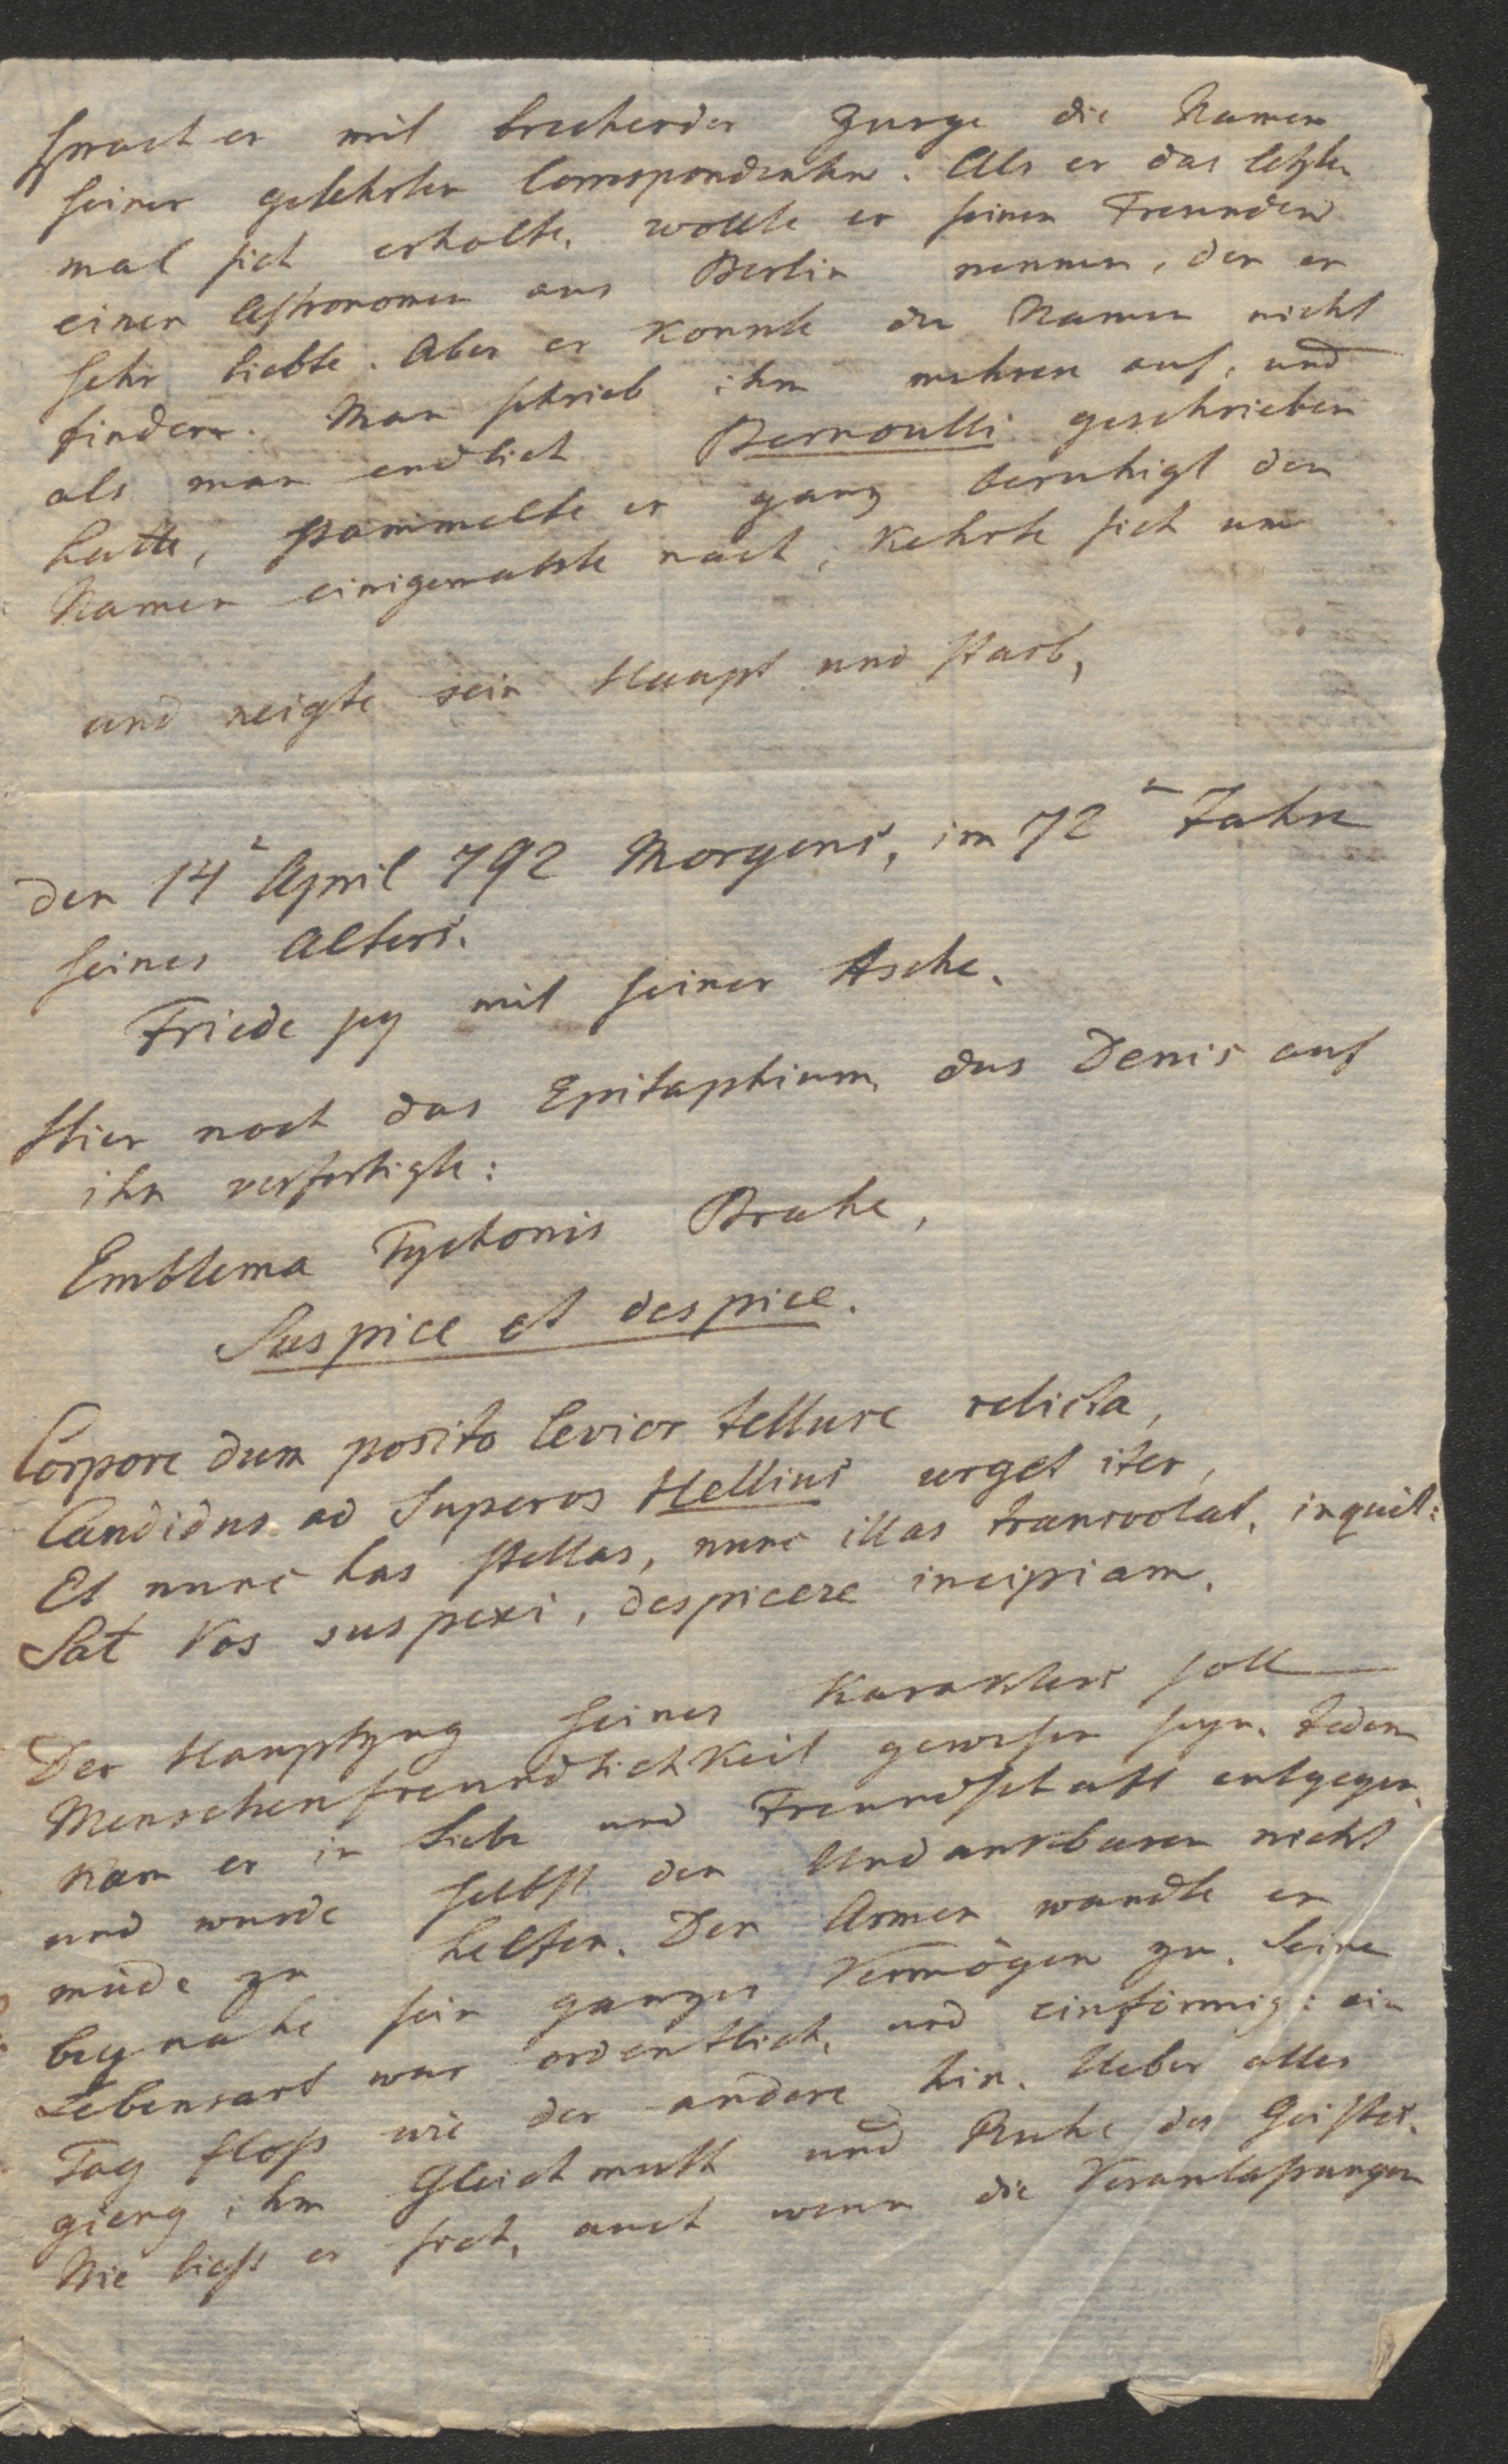 sprach er mit brechender Zunge die Namen
seiner gelehrten Correspondenten. Als er das letzte
mal sich erholte, wollte er seinen Freunden
einen Astronomen aus Berlin nennen, den er
sehr liebte. Aber er konnte den Namen nicht
finden. Man schrieb ihm mehrere auf, und
als man endlich Bernoulli geschrieben
hatte, stammelte er ganz beruhigt den
Namen einigemahle nach, kehrte sich um
und neigte sein Haupt und starb,
den 14n April 792 Morgens, im 72n Jahre
seines Alters.
Friede sey mit seiner Asche.
Hier noch das Epitaphium, das Denis auf
ihn verfertigte:
Emblema Tychonis Brahe,
Suspice et despice.
Corpore dum posito levior tellure relicta,
Candidus ad Superos Hellius urget iter,
Et nunc has stellas, nunc illas transvolat, inquit:
Sat Vos suspexi, despicere incipiam.
Der Hauptzug seines Karakters soll
Menschenfreundlichkeit gewesen seyn. Jedem
kam er in Liebe und Freundschaft entgegen,
und wurde selbst den Undankbaren nicht
müde zu helfen. Den Armen wandte er
beynahe sein ganzes Vermögen zu. Seine
Lebensart war ordentlich, und einförmig: ein
Tag floß wie der andere hin. Ueber alles
gieng ihm Gleichmuth und Ruhe des Geistes.
Nie ließ er sich, auch wenn die Veranlaßungen